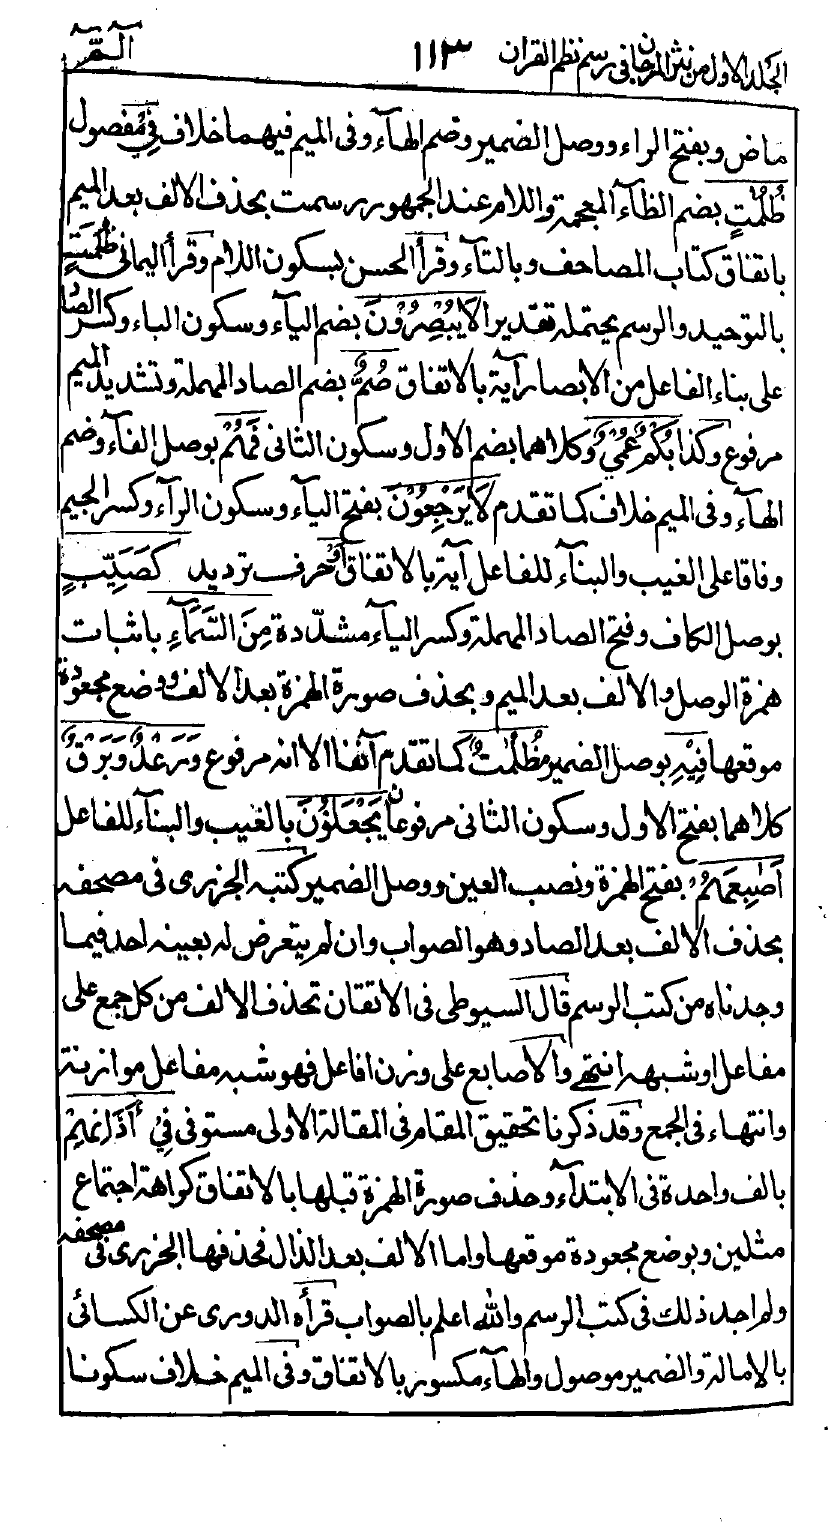 الجلد الاول من نثر المرجان فى رسم نظم القران ١١٣ الٓمّٓ
ماض وبفتح الراء ووصل الضمير وضم الهآء وفى الميم فيهما خلاف فِىْ مفصول
ظُلُمٰتٍ بضم الظآء المعجمة واللام عند الجمهور رسمت بحذف الالف بعد الميم
باتفاق كتاب المصاحف وبالتآء وقرأ الحسن بسكون اللام وقرأ اليمانى ظُلْمَةٍ
بالتوحيد والرسم يحتمله تقديرا لَا يُبْصِرُوْنَ بضم اليآء وسكون الباء وكسر الصاد
على بناء الفاعل من الابصار آية بالاتفاق صُمٌّ بضم الصاد المهملة وتشديد الميم
مرفوع وكذا بُكْمٌ عُمْىٌ وكلاهما بضم الاول وسكون الثانى فَهُمْ بوصل الفآء وضم
الهآء وفى الميم خلاف كما تقدم لَا يَرْجِعُوْنَ بفتح اليآء وسكون الرآء وكسر الجيم
وفاقا على الغيب والبنآء للفاعل آية بالاتفاق اَوْ حرف ترديد كَصَيِّبٍ
بوصل الكاف وفتح الصاد المهملة وكسر اليآء مشدّدة مِنَ السَّمَآءِ باثبات
همزة الوصل والالف بعد الميم وبحذف صورة الهمزة بعد الالف ووضع مجعودة
موقعها فِيْهِ بوصل الضمير ظُلُمٰتٌ كما تقدّم آنفا الا انه مرفوع وَرَعْدٌ وَبَرْقٌ
كلاهما بفتح الاول وسكون الثانى مرفوعان يَجْعَلُوْنَ بالغيب والبنآء للفاعل
اَصٰبِعَهُمْ بفتح الهمزة ونصب العين ووصل الضمير كتبه الجزرى فى مصحفه
بحذف الالف بعد الصاد وهو الصواب وان لم يتعرض له بعينه احد فيما
وجدناه من كتب الرسم قال السيوطى فى الاتقان تحذف الالف من كل جمع على
مفاعل او شبهه انتهى والاصابع على وزن افاعل فهو شبه مفاعل موازنة
وانتهاء فى الجمع وقد ذكرنا تحقيق المقام فى المقالة الاولى مستوفى فِىْٓ اٰذَانِهِمْ
بالف واحدة فى الابتدآء وحذف صورة الهمزة قبلها بالاتفاق كراهة اجتماع
مثلين وبوضع مجعودة موقعها واما الالف بعد الذال فحذفها الجزرى فى مصحفه
ولم اجد ذلك فى كتب الرسم والله اعلم بالصواب قرأه الدورى عن الكسائى
بالامالة والضمير موصول والهآء مكسور بالاتفاق وفى الميم خلاف سكونا